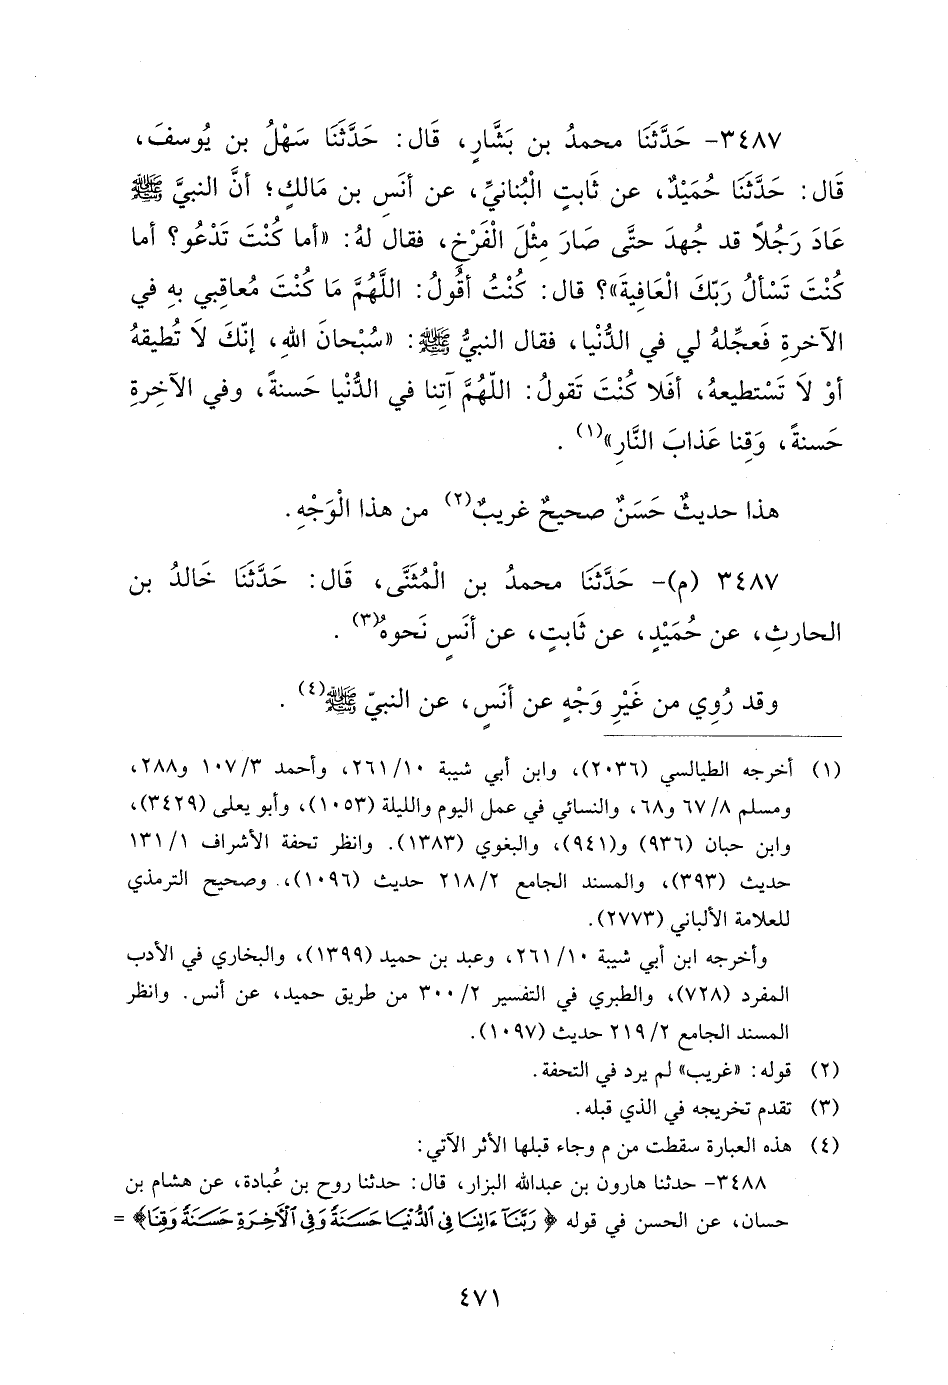 ٣٤٨٧- حَدَّثَنَا محمدُ بن بَشَّارٍ، قَال: حَدَّثَنَا سَهْلُ بن يُوسفَ،
قَال: حَدَّثَنَا حُمَيْدٌ، عن ثَابتٍ الْبُنانيِّ، عن أنَسِ بن مَالكٍ؛ أنَّ النبيَّ ﷺ
عَادَ رَجُلاً قد جُهدَ حتَّى صَارَ مِثْلَ الْفَرْخِ، فقال لهُ: «أما كُنْتَ تَدْعُو؟ أما
كُنْتَ تَسْألُ رَبّكَ الْعَافِيةَ»؟ قال: كُنْتُ أقُولُ: اللَّهُمَّ مَا كُنْتَ مُعاقِبي بهِ في
الآخرةِ فَعجِّلهُ لي في الدُّنْيا، فقال النبيُّ ﷺ: «سُبْحانَ اللهِ، إنّكَ لَا تُطيقهُ
أوْ لَا تَسْتطيعهُ، أفَلا كُنْتَ تَقولُ: اللّهُمَّ آتِنا في الدُّنْيا حَسنةً، وفي الآخِرةِ
حَسنةً، وَقِنا عَذابَ النَّارِ»(١) .
هذا حديثٌ حَسَنٌ صحيحٌ غريبٌ(٢) من هذا الْوَجْهِ.
٣٤٨٧ (م)- حَدَّثَنَا محمدُ بن الْمُثَنَّى، قَال: حَدَّثَنَا خَالدُ بن
الحارثِ، عن حُمَيْدٍ، عن ثَابتٍ، عن أنَسٍ نَحوهُ(٣) .
وقد رُوِي من غَيْرِ وَجْهٍ عن أنَسٍ، عن النبيّ ﷺ(٤) .
(١) أخرجه الطيالسي (٢٠٣٦)، وابن أبي شيبة ١٠/٢٦١، وأحمد ٣/١٠٧ و٢٨٨،
ومسلم ٨/٦٧ و٦٨، والنسائي في عمل اليوم والليلة (١٠٥٣)، وأبو يعلى (٣٤٢٩)،
وابن حبان (٩٣٦) و(٩٤١)، والبغوي (١٣٨٣). وانظر تحفة الأشراف ١/١٣١
حديث (٣٩٣)، والمسند الجامع ٢/٢١٨ حديث (١٠٩٦)، وصحيح الترمذي
للعلامة الألباني (٢٧٧٣).
وأخرجه ابن أبي شيبة ١٠/٢٦١، وعبد بن حميد (١٣٩٩)، والبخاري في الأدب
المفرد (٧٢٨)، والطبري في التفسير ٢/٣٠٠ من طريق حميد، عن أنس. وانظر
المسند الجامع ٢/٢١٩ حديث (١٠٩٧).
(٢) قوله: «غريب» لم يرد في التحفة.
(٣) تقدم تخريجه في الذي قبله.
(٤) هذه العبارة سقطت من م وجاء قبلها الأثر الآتي:
٣٤٨٨- حدثنا هارون بن عبدالله البزار، قال: حدثنا روح بن عُبادة، عن هشام بن
حسان، عن الحسن في قوله ﴿ رَبَّنَآ ءَاتِنَا فِى ٱلدُّنْيَا حَسَنَةً وَفِى ٱلْأَخِرَةِ حَسَنَةً وَقِنَا﴾ =
٤٧١